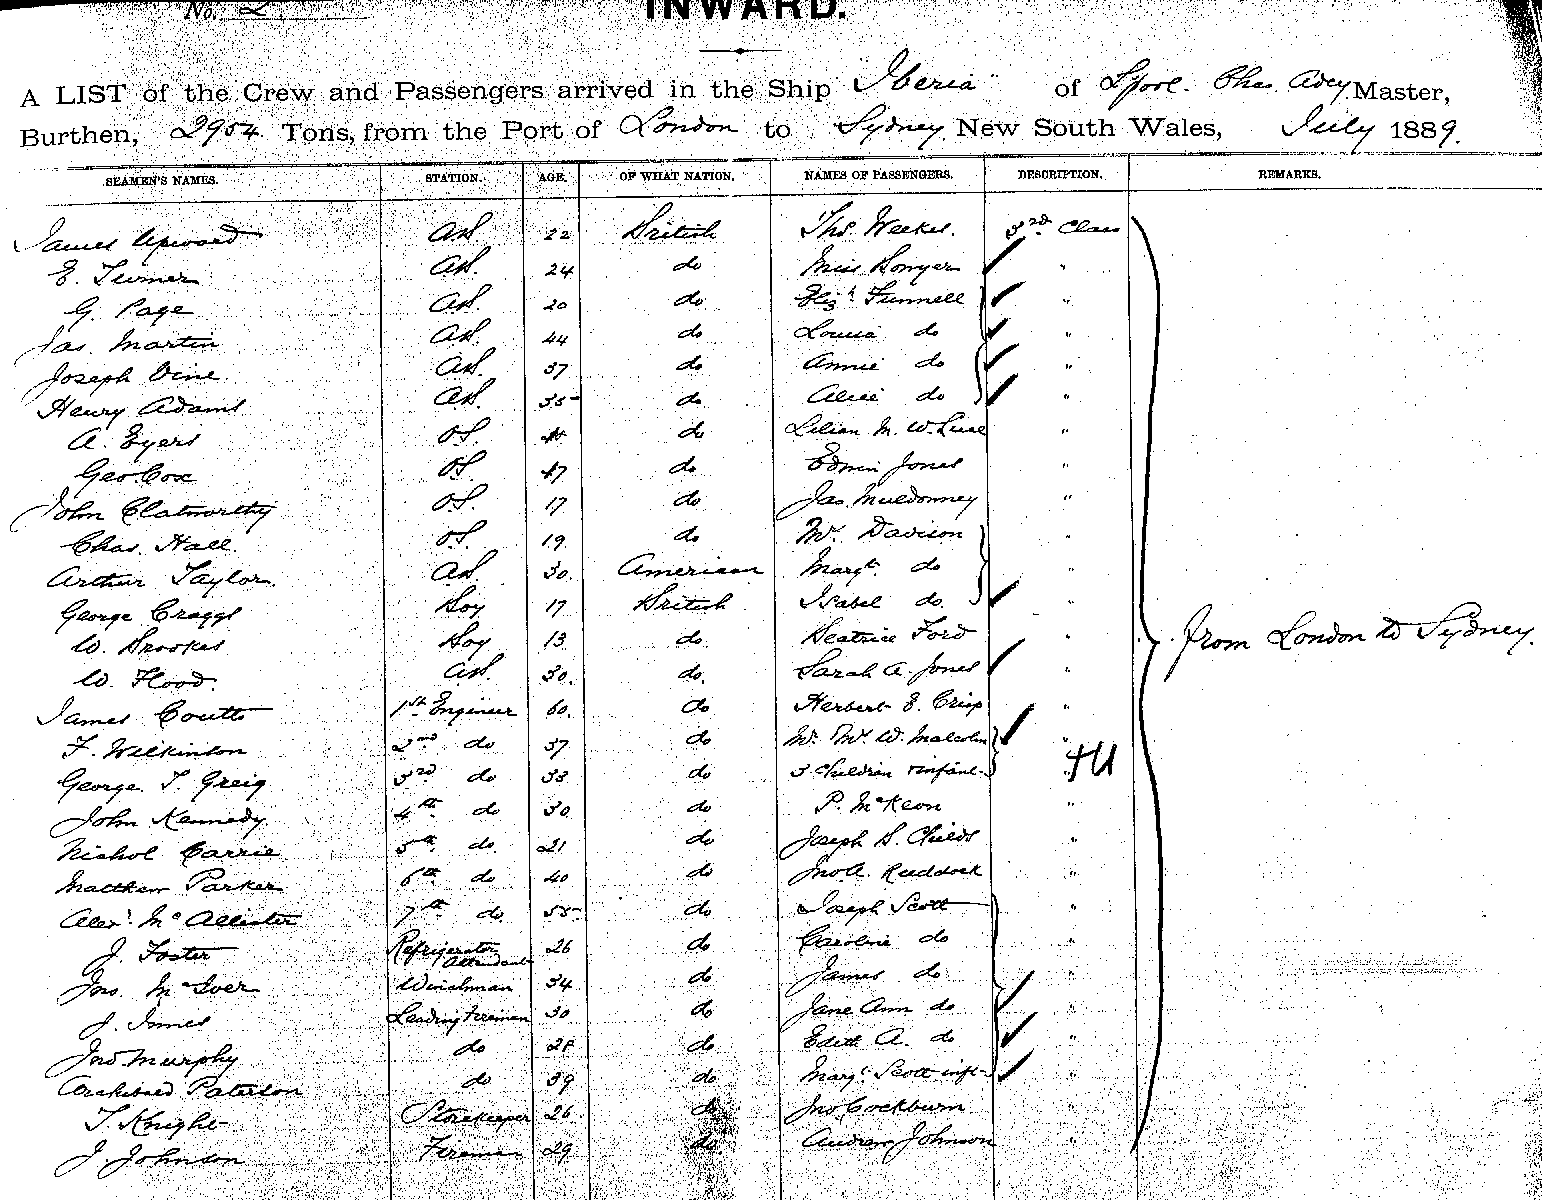 No. 2
INWARD.
A LIST of the Crew and Passengers arrived in the Ship Iberia" of Lpool. Chas. Adey Master,
Burthen, 2954 Tons, from the Port of London to Sydney New South Wales, July 1889.
SEAMEN'S NAMES. STATION. AGE. OF WHAT NATION. NAMES OF PASSENGERS. DESCRIPTION. REMARKS.
James Upward AB. 22 British Thos. Weekes. 3rd Class
E. Turner AB. 24 do Miss Bonyer "
G. Page AB. 20 do Elizth Funnell "
Jas. Martin AB. 44 do Louisa do "
Joseph Vine AB. 37 do Annie do "
Henry Adams AB. 35 do Alice do "
A. Eyers OS. do Lilian M. W. "
Geo Cox OS. 17 do Edwin Jones "
John Clatworthy OS. 17 do Jas. Muldonney "
Chas. Hall OS. 19 do Davison "
Arthur Taylor. AB. 30. American Margt. do "
George Craggs Boy 17 British Isabel do. "
W. Brookes Boy 13 do Beatrice Ford "
W. Flood. AB. 30. do. Sarah A. Jones "
from London to Sydney.
James Coutts 1st Engineer 60. do Herbert E. Crisp "
F. Wilkinson 2nd do 37 do Mr. Mrs. W. Malcolm "
George T. Greig 3rd do 33 do 3 Children + infant "
John Kennedy. 4th do 30. do P. McKeon "
Nichol Carrie 5th do. 21 do Joseph S. Childs "
Matthew Parker 6th do 40 do Jno A. Ruddock "
Alexr. McAllister 7th do 55 do Joseph Scott "
J. Foster Refrigerator Attendant 26 do Caroline do "
Jno. McIver Winchman 34 do James do "
J. Innes Leading Fireman 30 do Jane Ann do "
Jno. Murphy do 28 do Edith A. do "
Archibald Paterson do 39 do Margt. Scott inft "
T. Knight Storekeeper 26 do Jno. Cockburn "
J. Johnson Fireman 29 do. Andrew Johnson "